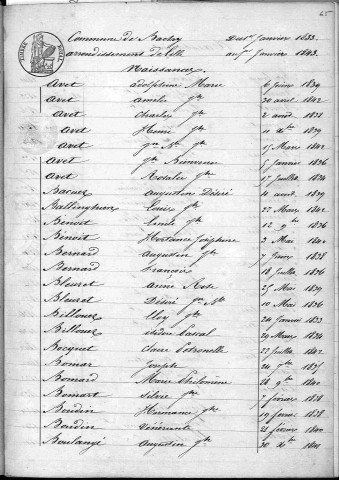 65
Commune de Du 1er Janvier 1833.
arrondissement de Lille au 1er Janvier 1843.
Naissances.
Avet adolphine Marie 6 Juin 1839
Avet amelie Jh 30 avril 1842
Avet Charles Jh 2 avril 1838
Avet Henri Jh 11 Xbre 1839
Avet Jn Bte Jh 15 Mars 1842
Avet Jh Bienvenu 5 Janvier 1836
Avet Rosalie Jh 17 Juillet 1834
Bacuez augustine Désiré 4 aout 1839
Louise Jh 22 Mars 1842
Benoit Emile Jh 12 9bre 1836
Benoit Hortence Josephine 2 Mai 1840
Bernard augustin Jh 7 Janv 1838
Bernard François 18 Juillet 1836
Bleuret annie Rose 25 Mai 1839
Bleuret Désiré Jn Bte 10 Mai 1836
Billouez Eloy Jh 24 Janvier 1833
Billouez isidore Pascal 29 Mars 1834
Bocquet Claire Petronelle 22 Juillet 1842
Bomar Joseph 24 9bre 1835
Bomard Marie Philomène 28 9bre 1840
Bomart Silvie Jh 7 février 1838
Boudin Hermance Jh 19 février 1838
Boudin Vénérante 21 février 1840
Boulangé augustin Jh 30 Xbre 1841